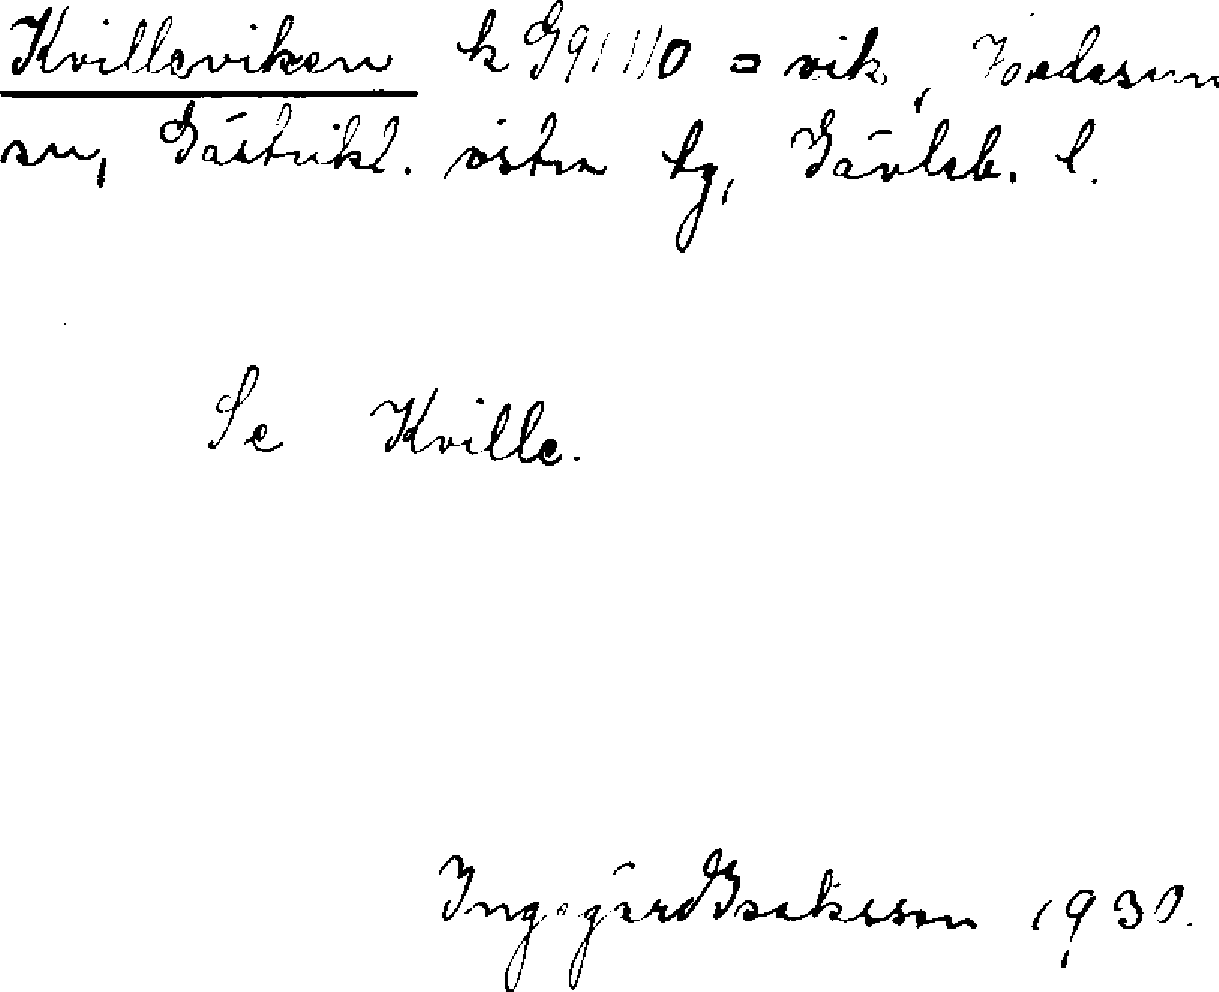 Kvilleviken k G91110 = vik, Hedesun
sn, Gästrikl. östra tg, Gävleb. l.
Se Kville.
Ingegärd Isaksson 1930.